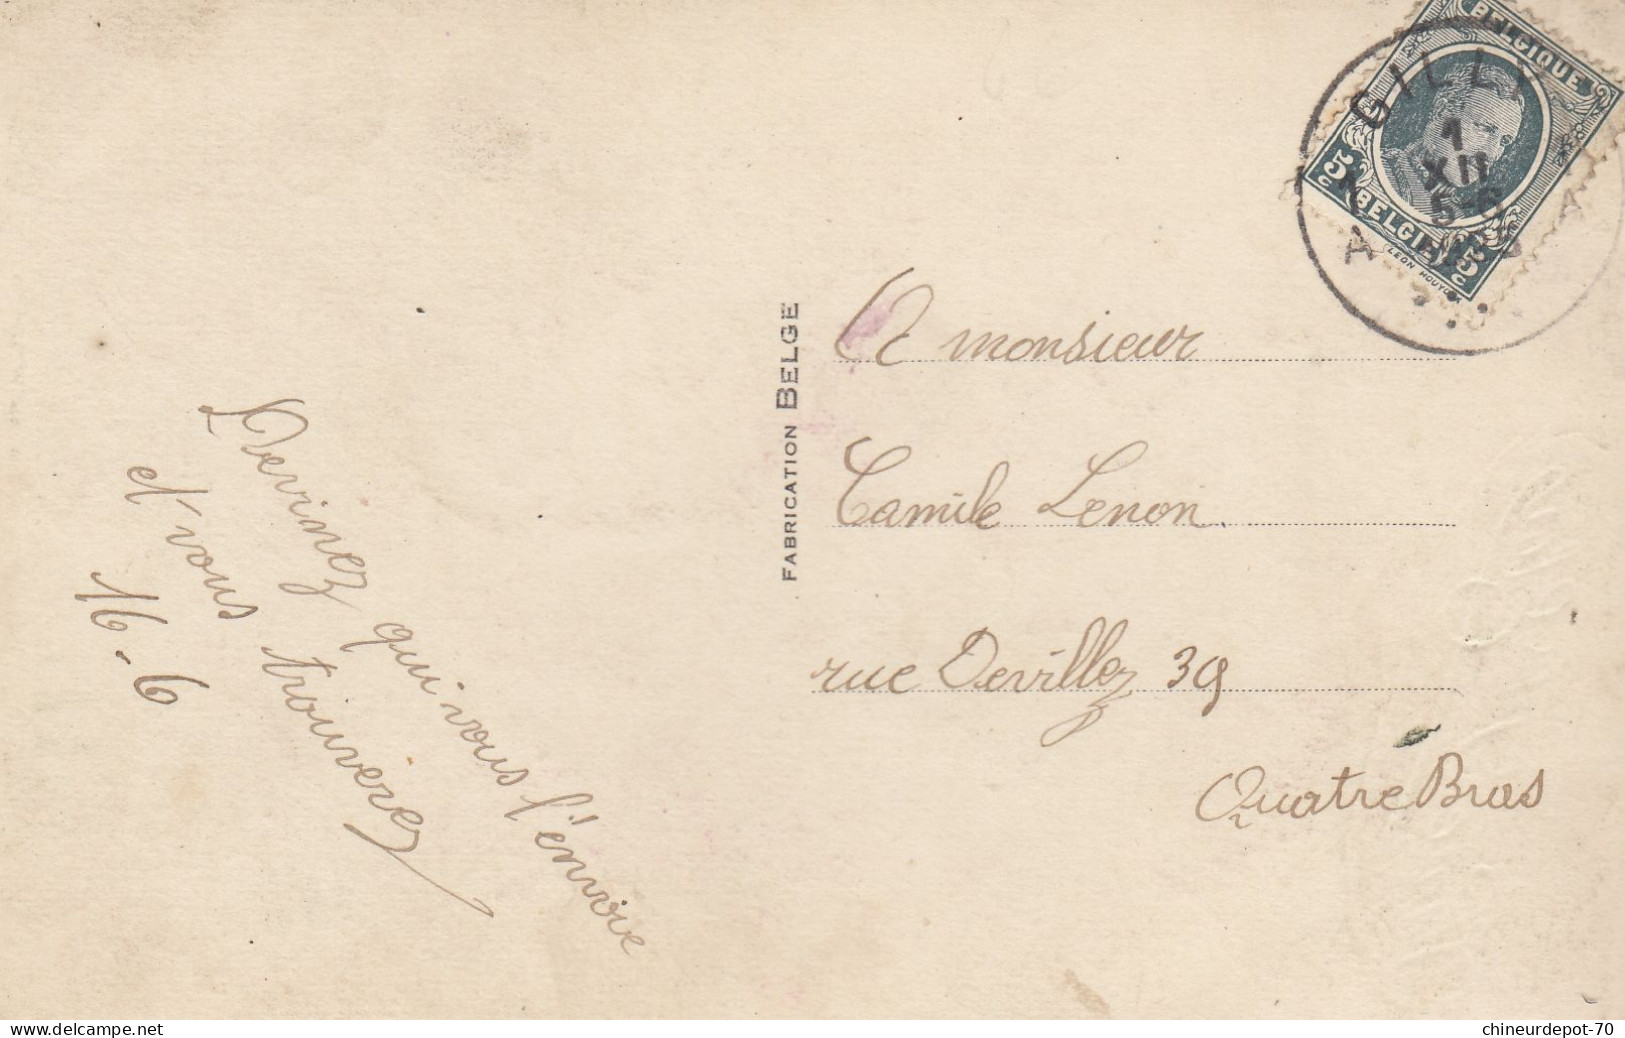 Devinez qui vous l'envoie
et vous trouverez
16-6
FABRICATION BELGE
A monsieur
Camile Lenon.
rue Devillez 39
Quatre Bras
BELGIQUE
5c BELGIË 5c
GILLY
1
XII
5-6
A A
delcampe.net
chineurdepot-70